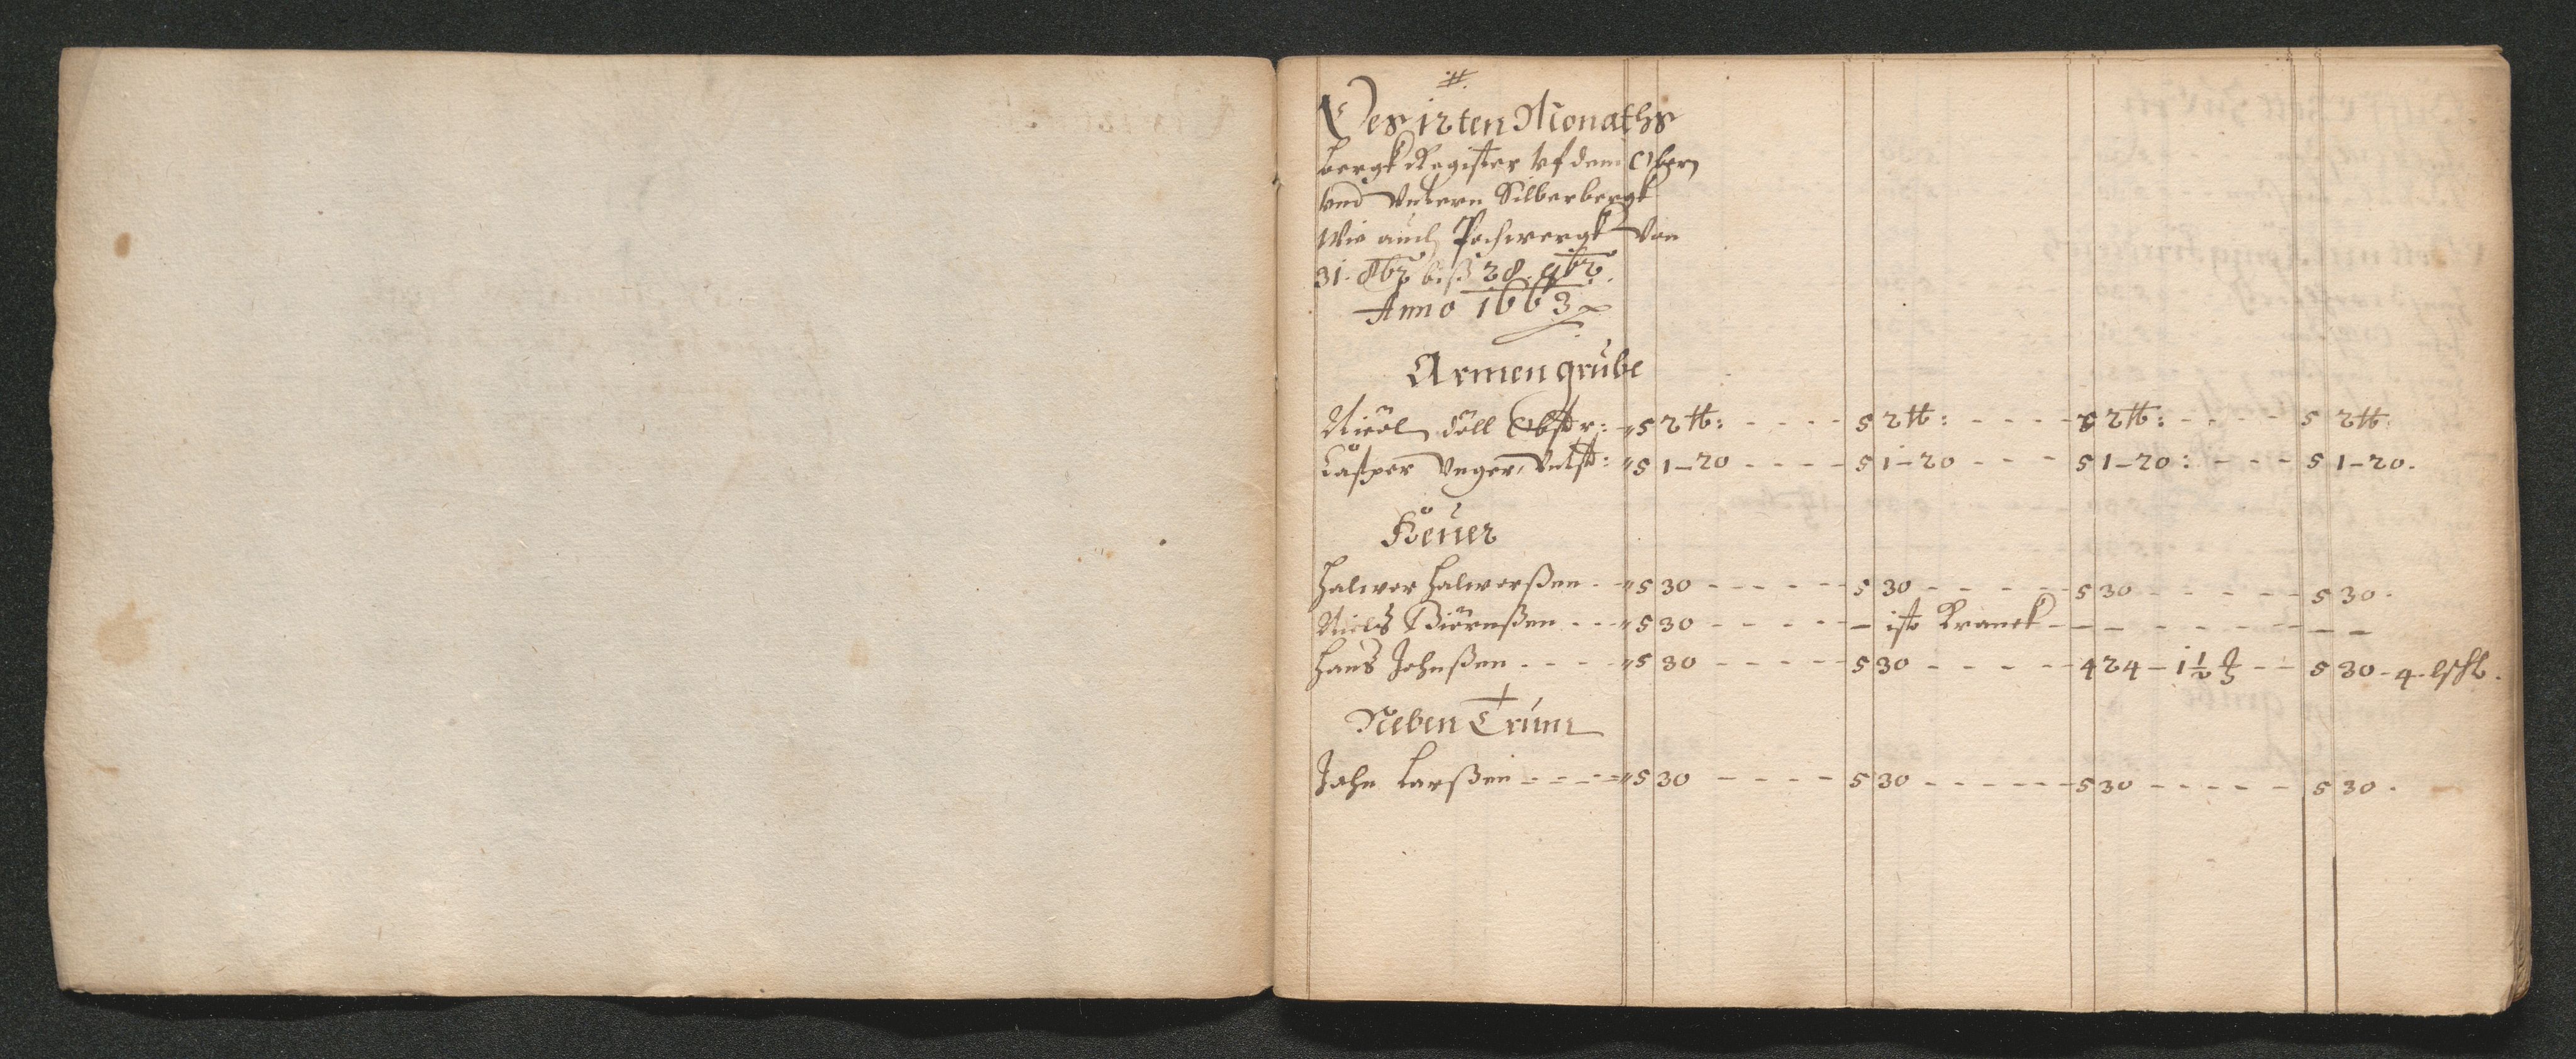 #.
Des 12ten Monaths
bergk Register vf dem Obern
vnd Vntern Silberbergk
Wie auch Pochwergk Von
31. 8br̃ biß 28. 9br̃.
Anno 1663
Armen grube
Nicol döll Obstr: " 5 2 ℔: - - - - 5 2 ℔: - - - - 5 2 ℔: - - - - 5 2 ℔.
Casper Vnger, Vntst: " 5 1-20 - - - - 5 1-20 - - - 5 1-20: - - - 5 1-20.
Heuer
Halwor Halworßen - " 5 30 - - - - - 5 30 - - - - - 5 30 - - - - - 5 30.
Niels Biörnßen - - " 5 30 - - - - - ist Kranck - - - - - - - -
Hans Johnßen - - - - " 5 30 - - - - - 5 30 - - - - - 4 24 - 1½ - - 5 30 - 4
Neben Trum
John Larßen - - - - " 5 30 - - - - 5 30 - - - - - 5 30 - - - - - 5 30.